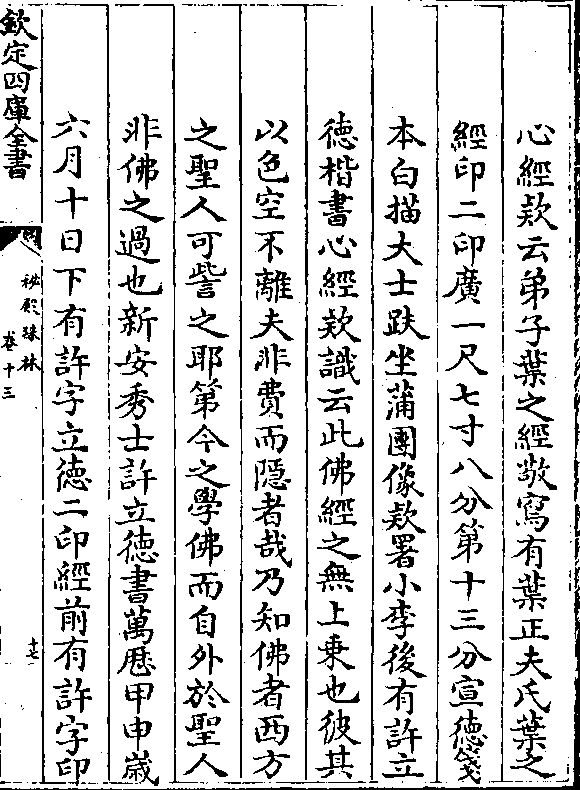 心經欵云弟子葉之經敬寫有葉正夫氏葉之
經印二印廣一尺七寸八分第十三分宣德箋
本白描大士趺坐蒲團像欵署小李後有許立
德楷書心經欵識云此佛經之無上乗也彼其
以色空不離夫非費而隱者哉乃知佛者西方
之聖人可訾之耶第今之學佛而自外於聖人
非佛之過也新安秀士許立德書萬歴甲申嵗
六月十日下有許字立德二印經前有許字印
欽定四庫全書
祕殿珠林
卷十三